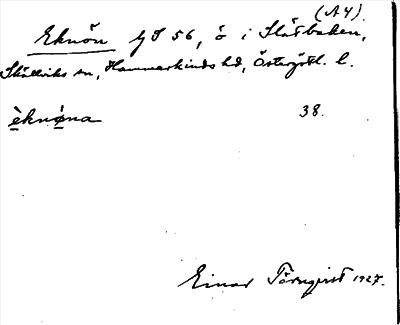 (A4).
Eknön GS 56, ö i Slätbaken,
Skällviks sn, Hammarkinds hd, Östergötl. l.
èknø̀na 38.
Einar Törnqvist 1927.